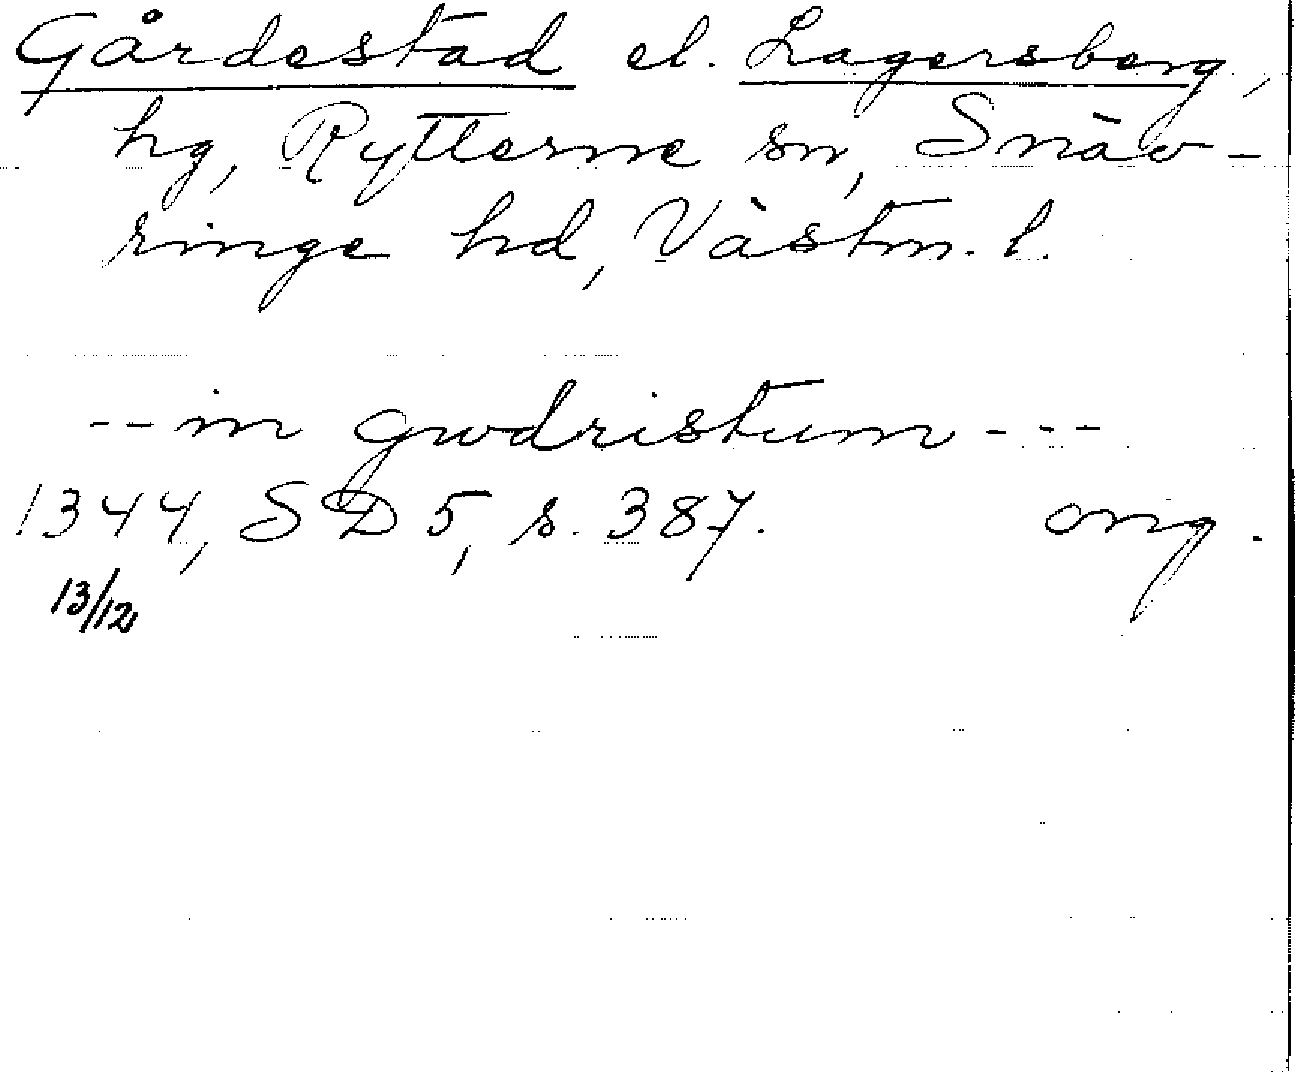 Gårdestad el. Lagersberg,
hg, Rytterne sn, Snäv-
ringe hd, Västm. l.
-- in gwdristum ---
1344, SD 5, s. 387. orig.
13/12